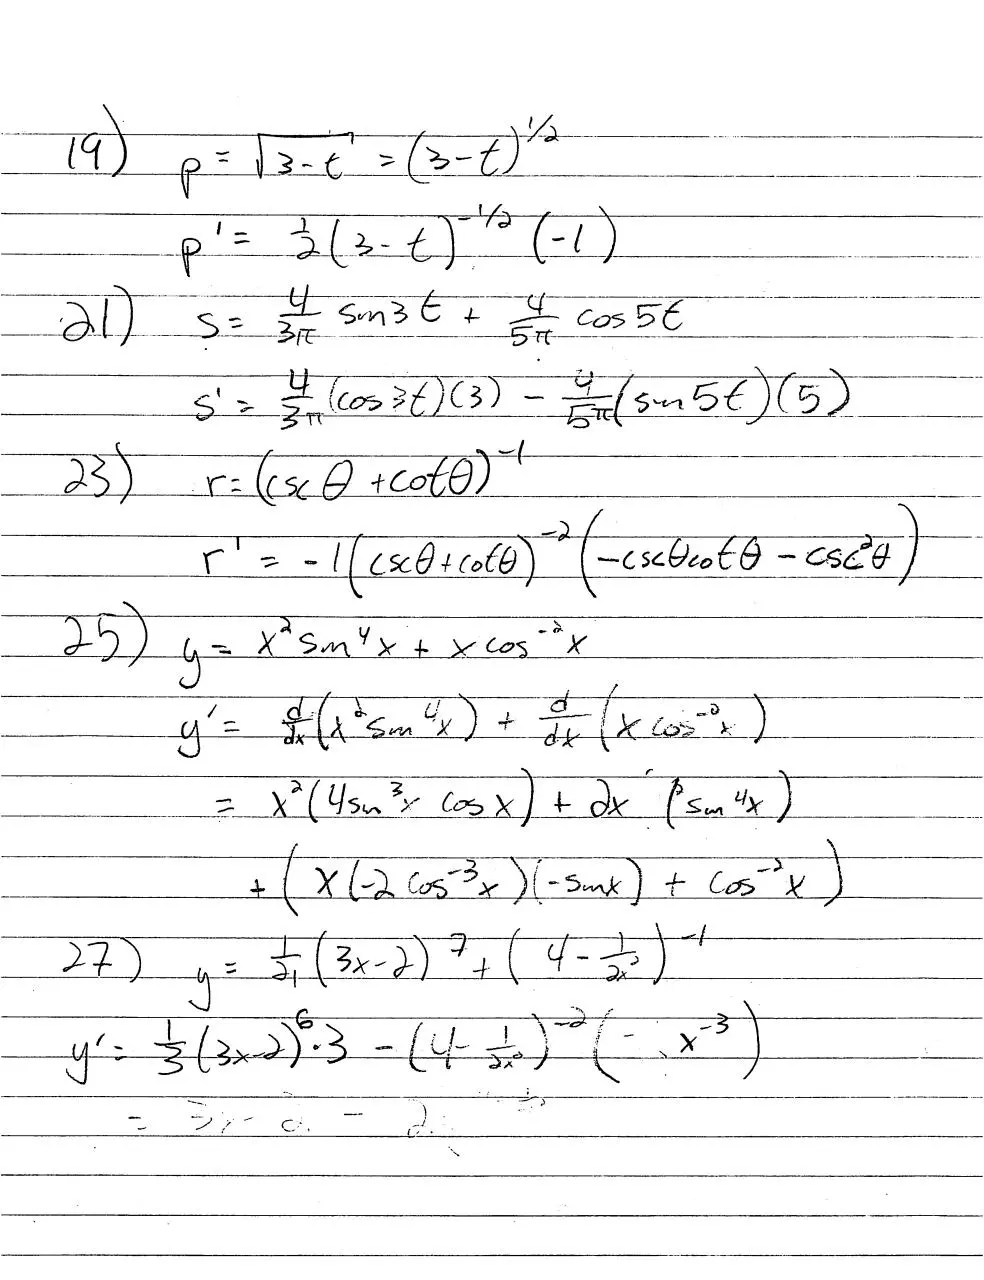 19) p = √3-t = (3-t)^1/2
p' = 1/2 (3-t)^-1/2 (-1)
21) s = 4/3π sin3t + 4/5π cos5t
s' = 4/3π (cos3t)(3) - 4/5π (sin5t)(5)
23) r = (cscθ + cotθ)^-1
r' = -1(cscθ + cotθ)^-2 (-cscθcotθ - csc²θ)
25) y = x² sin⁴x + x cos⁻²x
y' = d/dx (x² sin⁴x) + d/dx (x cos⁻²x)
= x² (4sin³x cosx) + 2x ( sin⁴x)
+ (x(-2cos⁻³x)(-sinx) + cos⁻²x)
27) y = 1/21 (3x-2)⁷ + (4 - 1/2x²)⁻¹
y' = 1/3 (3x-2)⁶·3 - (4 - 1/2x²)⁻² ( x⁻³)